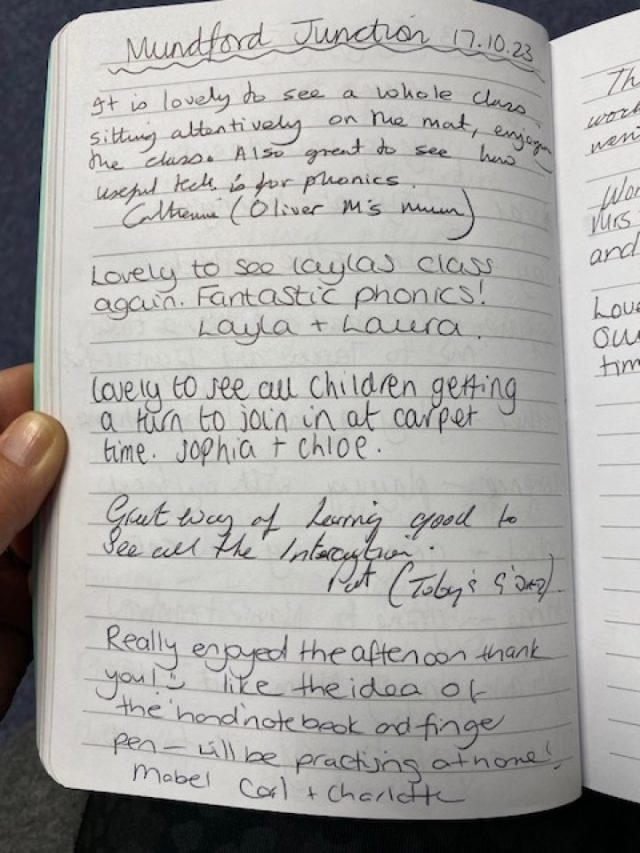 Mundford Junction 17.10.23
It is lovely to see a whole class
sitting attentively on the mat, enjoying
the class. Also great to see how
useful tech is for phonics.
Catherine (Oliver M's mum)
Lovely to see Laylas class
again. Fantastic phonics!
Layla + Laura.
Lovely to see all children getting
a turn to join in at carpet
time. Sophia + Chloe.
Great way of learning good to
See all the Interaction.
Pat (Toby's G'Dad).
Really enjoyed the afternoon thank
you! like the idea of
the 'hand' notebook and finge
pen - will be practising at home!
Mabel Carl + Charlotte
Th
wor
Wor
Mrs
and
Love
Our
tim